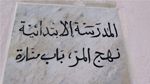 المدرسة الابتدائية
نهج المر، باب منارة